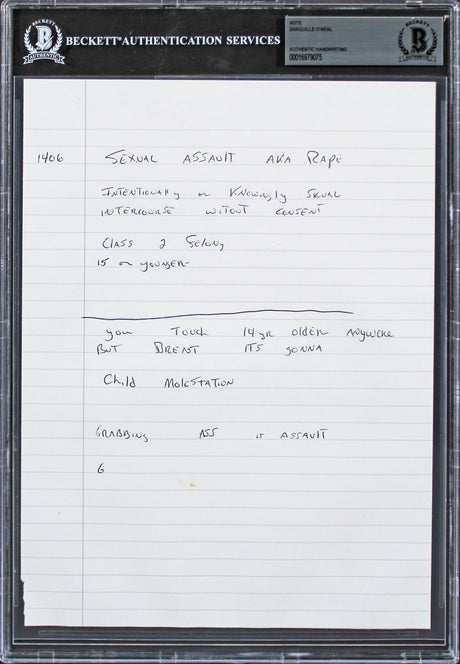 BECKETT
B
AUTHENTIC
BECKETT® AUTHENTICATION SERVICES
NOTE
SHAQUILLE O'NEAL
AUTHENTIC HANDWRITING
00016979075
BECKETT
B
AUTHENTIC
1406 SEXUAL ASSAULT AKA RAPE
INTENTIONALLY OR KNOWINGLY SXUAL
INTERCOURSE WITOUT CONSENT
CLASS 2 FELONY
15 OR YOUNGER
you TOUCH 14 yR OLDER ANYWERE
BUT BREAST ITS GONNA
Child MOLESTATION
GRABBING ASS is ASSAULT
6